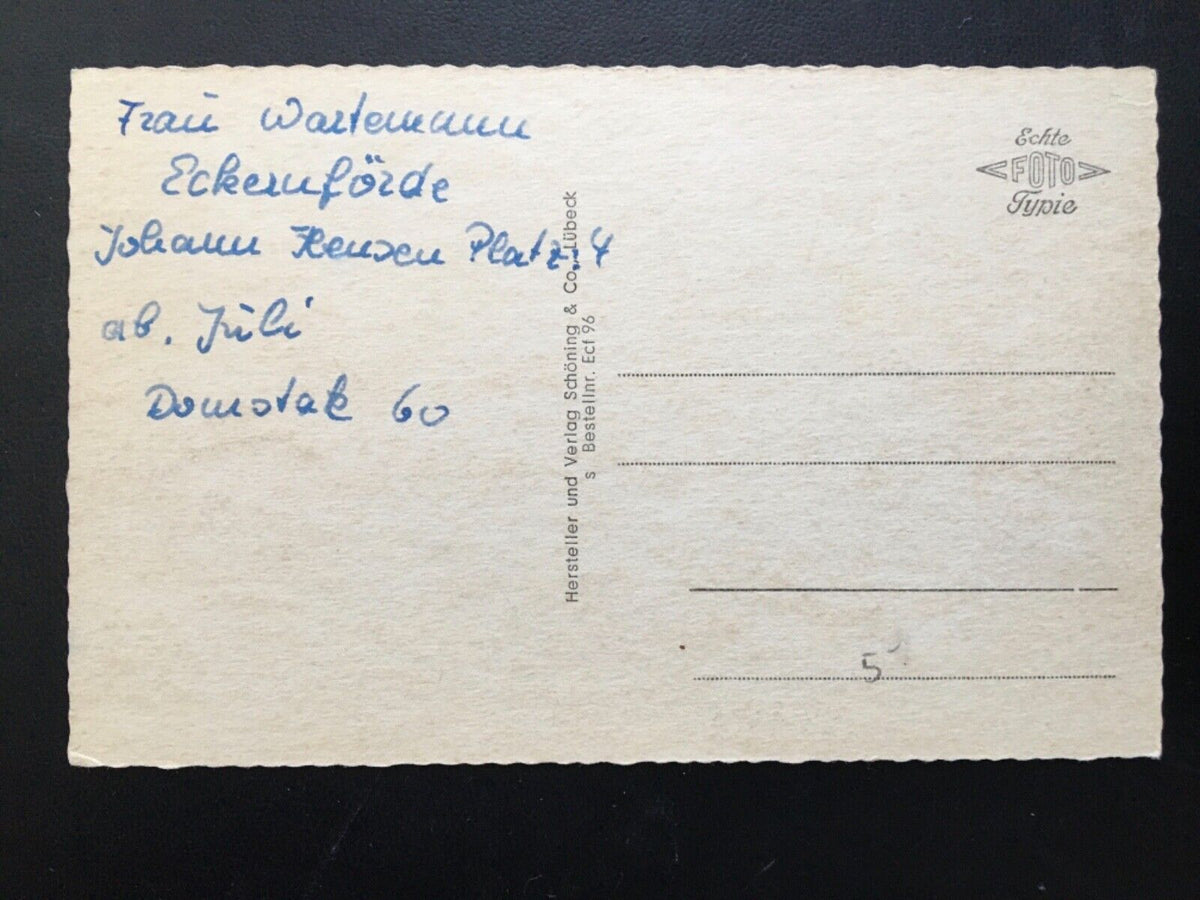 Frau Wartemann
Eckernförde
Johann Hensen Platz: 4
ab. Juli
Domstak 60
Echte
<FOTO>
Typie
Hersteller und Verlag Schöning & Co., Lübeck
s Bestellnr. Ecf 96
5